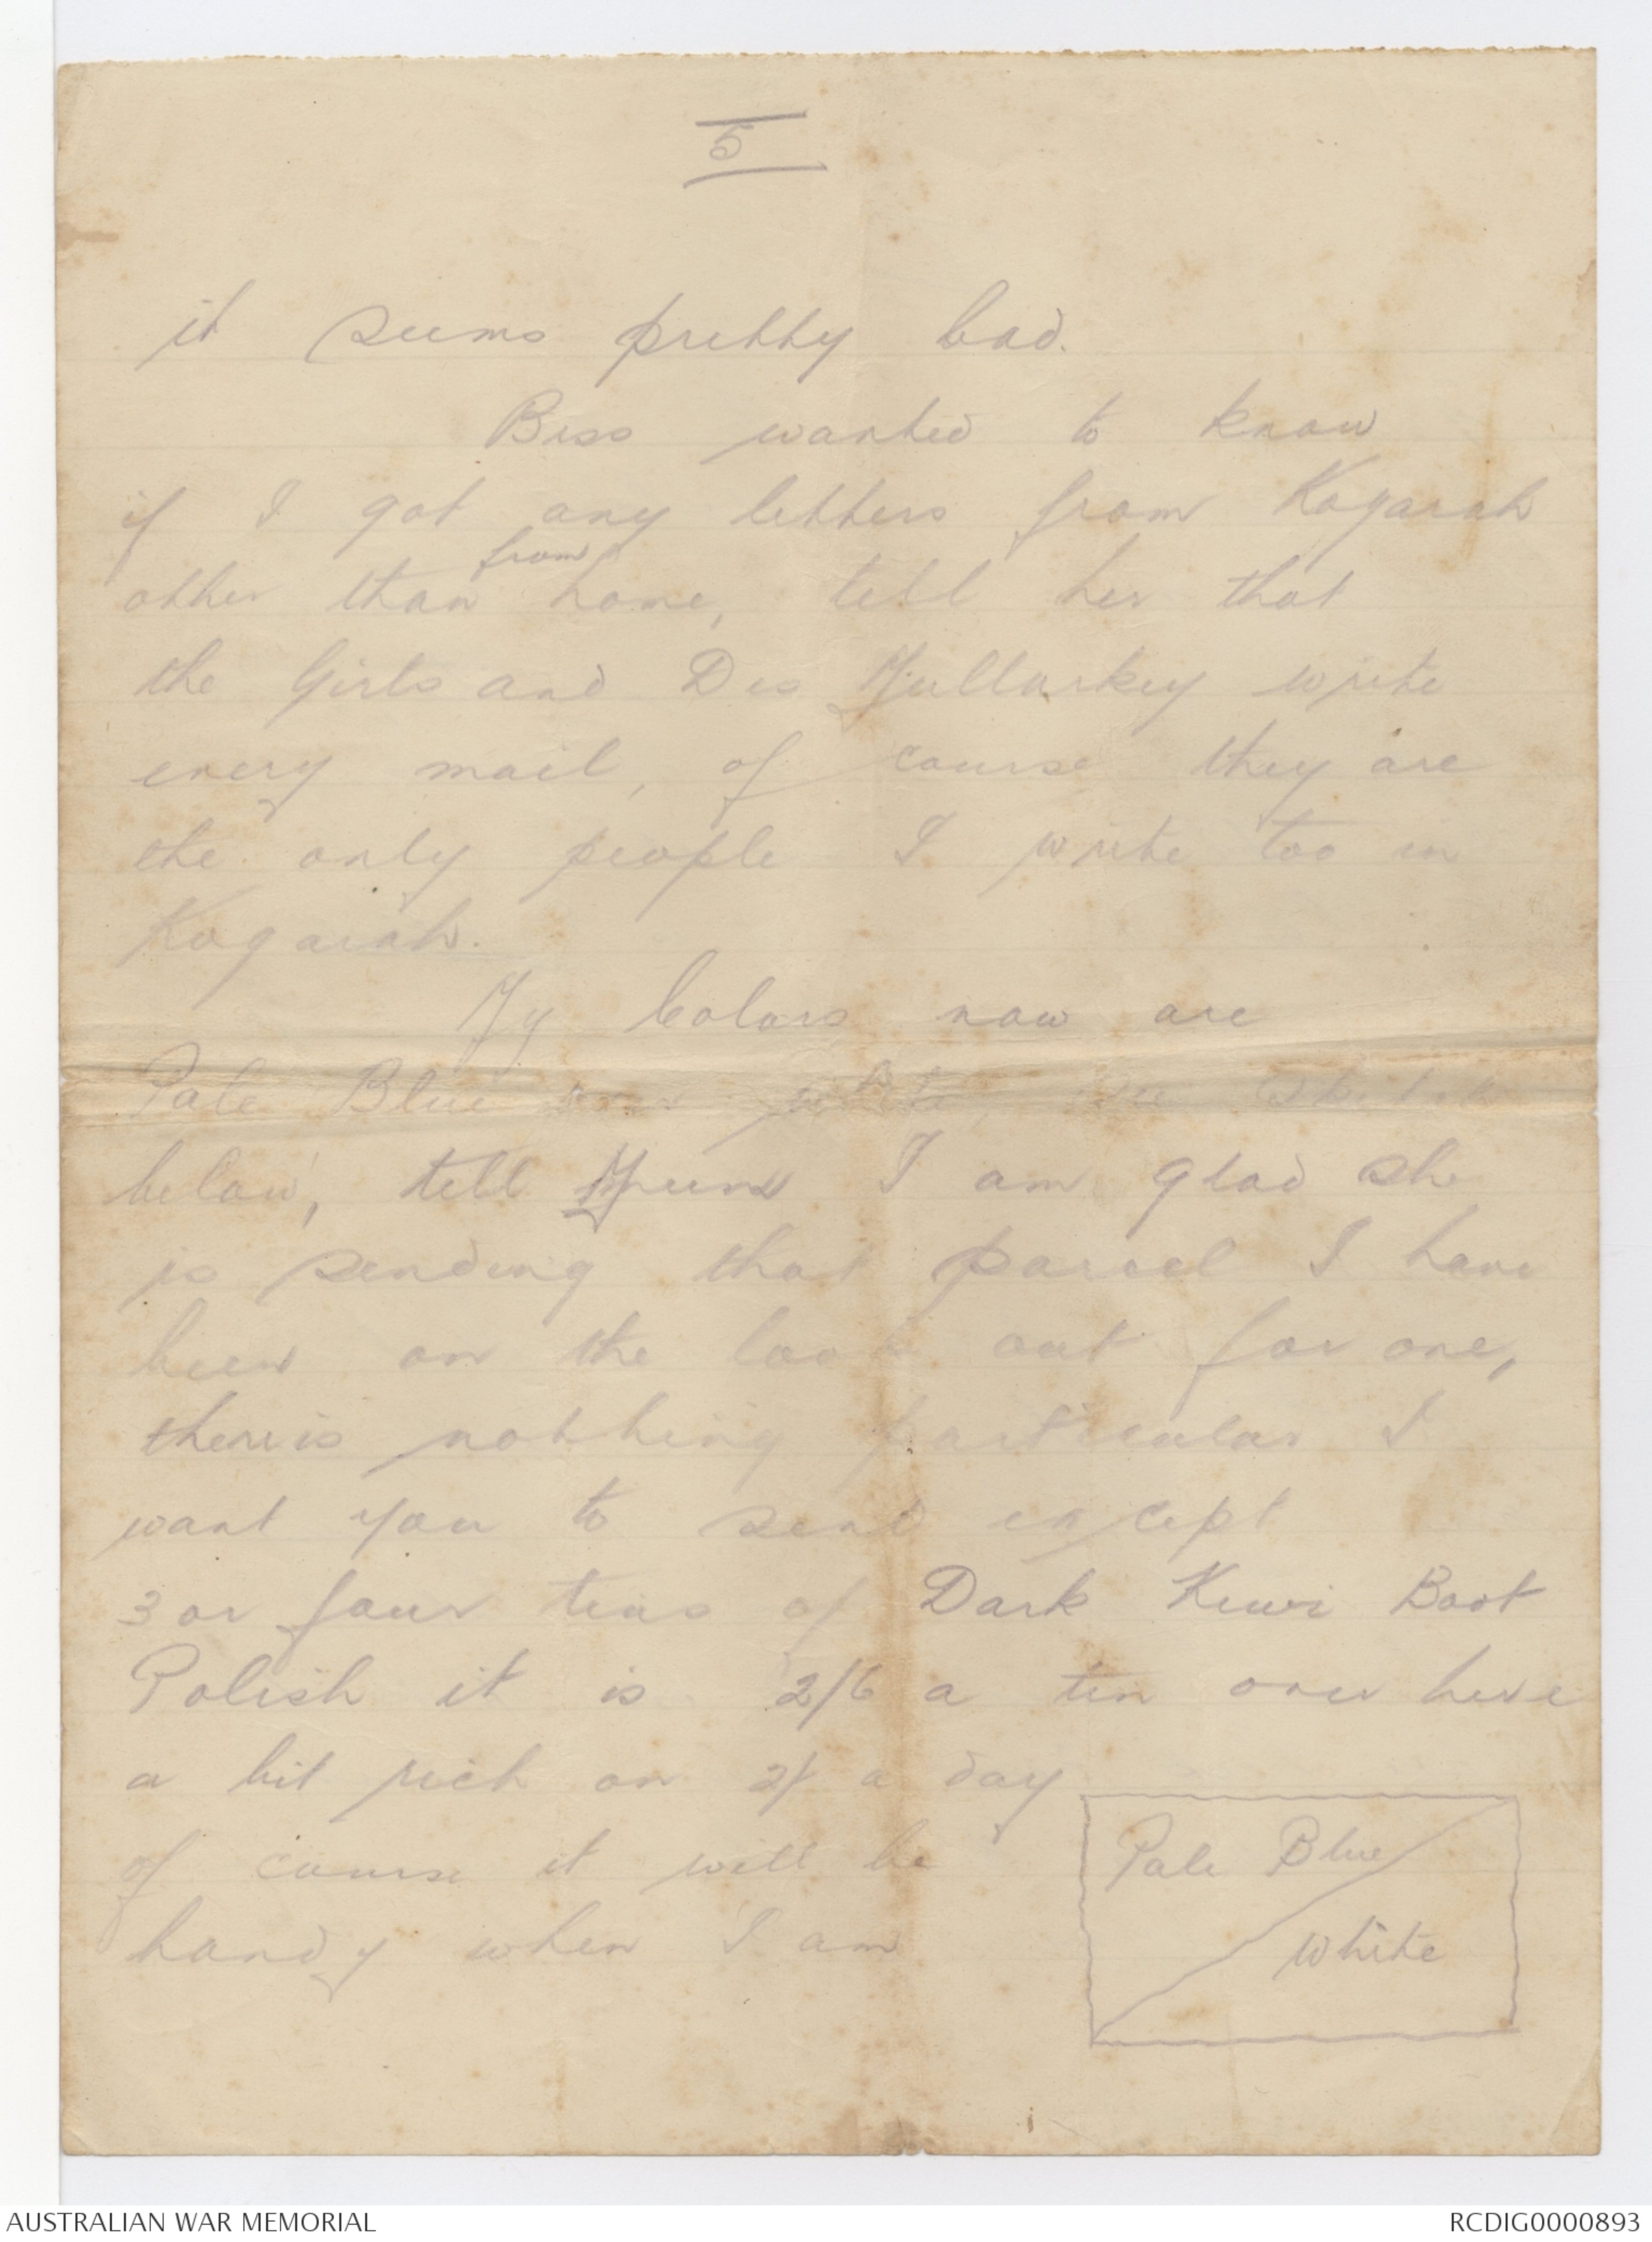 5
it seems pretty bad.
Bess wanted to know
if I got any letters from Kogarah
from
other than home, tell her that
the Girls and Des Mullarkey write
every mail, of course they are
the only people I write too in
Kogarah.
My Colors now are
Pale Blue white, see sketch
below, tell I am glad she
is sending that parcel I have
been on the look out for one,
there is nothing particular I
want you to send except
3 or four tins of Dark Kiwi Boot
Polish it is 2/6 a tin over here
a bit rich on 2/ a day
of course it will be
handy when I am
Pale Blue
White
AUSTRALIAN WAR MEMORIAL
RCDIG0000893